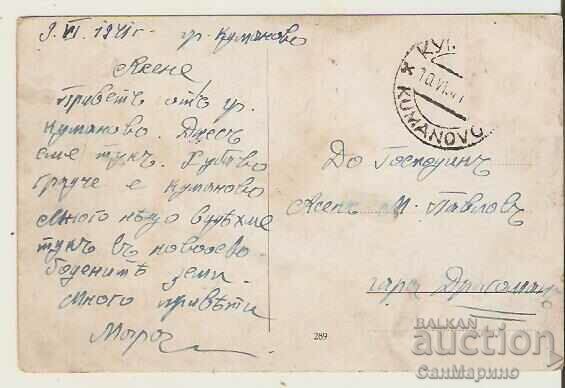 9.VI.1941г гр. Куманово
Асене
Приветъ отъ гр.
Куманово. Днесъ
сме тукъ. Хубаво
градче е Куманово
Много нѣщо видѣхме
тукъ въ новоосво
боденитѣ земи.
Много привѣти
КУМ
10.VI.41
KUMANOVO
До Господинъ
Асенъ М. Павловъ
гара Драгоман
289
BALKAN
auction
СанМарино